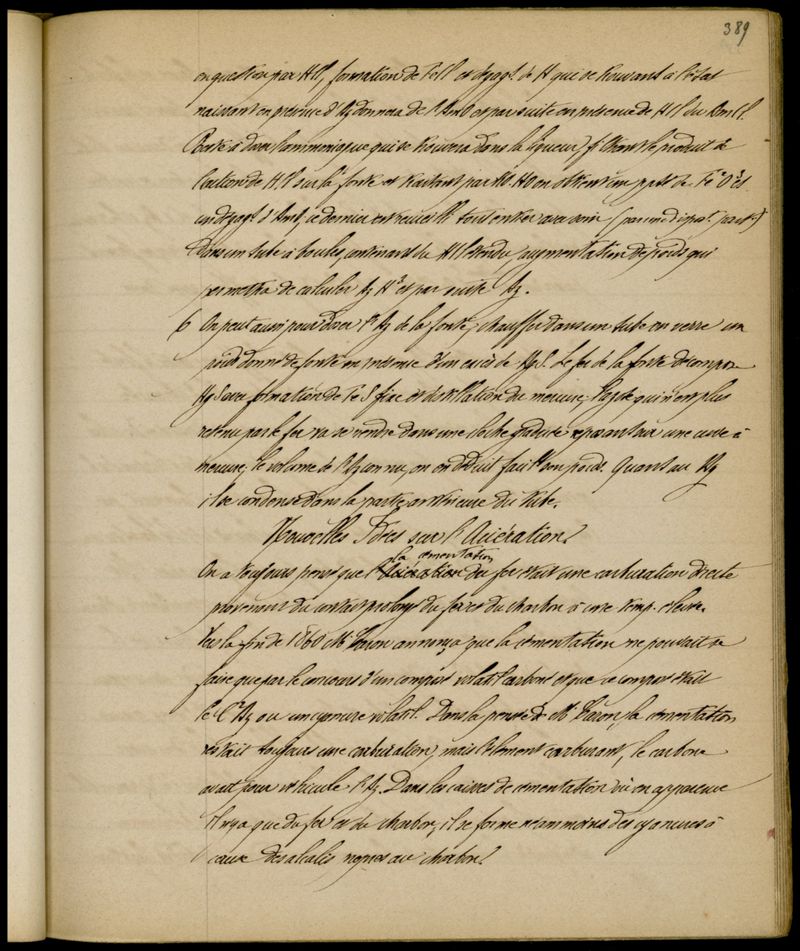 389
en question par HCl, formation de FeCl et dégagt. de H qui se trouvant à l'état
naissant en présence d'Az donnera de l'AmO et par suite en présence de HCl du AmCl.
Reste à doser l'ammoniaque qui se trouvera dans la liqueur, filtrant le produit de
l'action de HCl sur la fonte et traitant par KO.HO on obtient un ppté de Fe²O³ et
un dégagt. d'AmO, ce dernier est recueilli tout entier avec soin
dans un tube à boules contenant du HCl étendu, augmentation de poids qui
permettra de calculer AzH³ et par suite Az.
6 On peut aussi pour doser l'Az de la fonte, chauffer dans un tube en verre un
poids donné de fonte en présence d'un excès de HgS. Le fer de la fonte décompose
HgS avec formation de FeS fixe et distillation du mercure; l'azote qui n'est plus
retenu par le fer va se rendre dans une cloche graduée reposant sur une cuve à
mercure; le volume de l'Az connu, on en déduit facilt. son poids. Quant au Hg
il se condense dans la partie antérieure du tube.
Nouvelles Idées sur l'Aciération.
On a toujours pensé que l'aciération la cémentation du fer était une carburation directe
provenant du contact prolongé du fer et du charbon à une temp. élevée.
Vers la fin de 1860 Mr Caron annonça que la cémentation ne pouvait se
faire que par le concours d'un composé volatil carboné et que ce composé était
le C²Az ou un cyanure volatil. Dans la pensée de Mr Caron, la cémentation
restait toujours une carburation, mais l'élément carburant, le carbone
avait pour véhicule l'Az. Dans les caisses de cémentation où en apparence
il n'y a que du fer et du charbon, il se forme néanmoins des cyanures à
cause des alcalis renfermés au charbon.